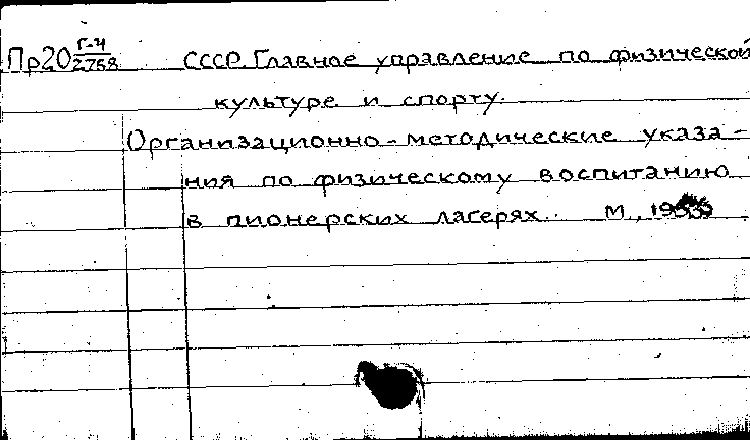 Пр20 Г-4/2758 СССР. Главное управление по физической
культуре и спорту.
Организационно-методические указа-
ния по физическому воспитанию
в пионерских лагерях. М.,